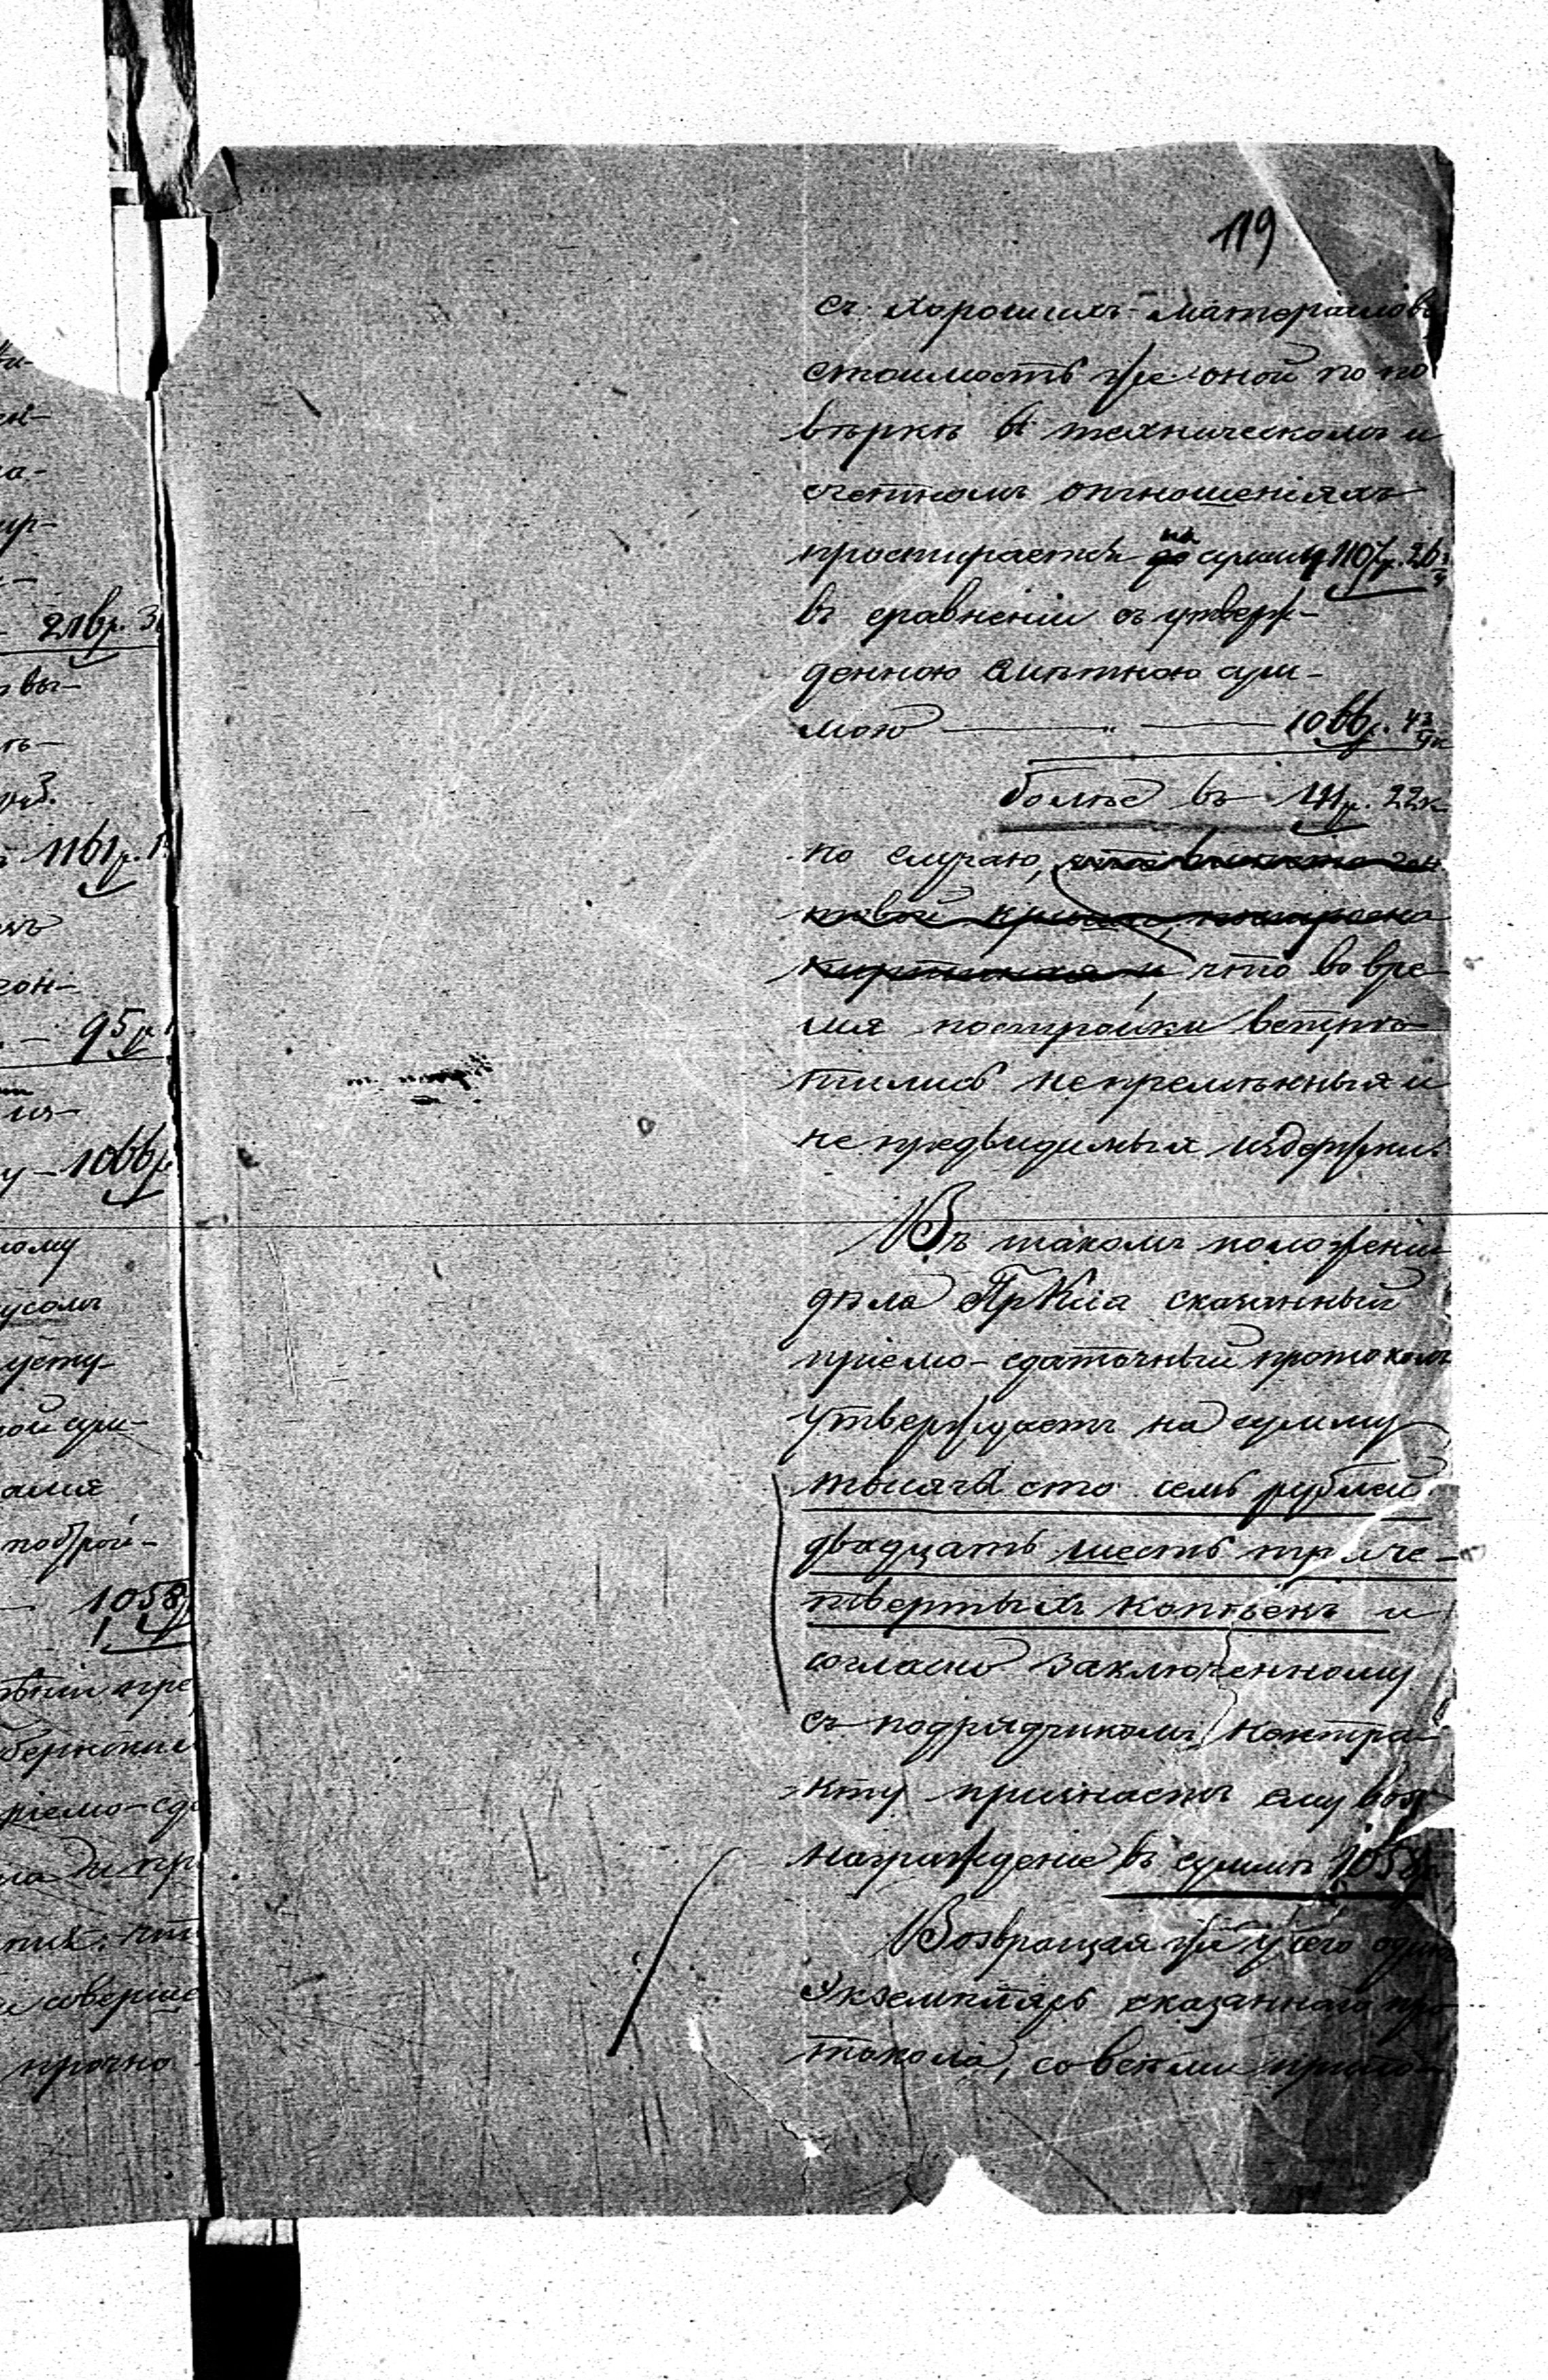 119
съ хорошихъ матерiаловъ
стоимость же оной по по
вѣркѣ въ техническомъ и
счетномъ отношенiяхъ
простирается на сумму 1107 р. 26 3/4
въ сравненiи съ утверж-
денною смѣтною сум-
мою — „ — 1066 р. 4 3/4 к
болѣе въ 41 р. 22 к
по случаю, что вмѣсто гон
товой крыши, построена
что во вре-
мя постройки встрѣ-
тились непремѣнныя и
непредвидимыя издержки.
Въ такомъ положенiи
дѣла сказанный
прiемо-сдаточный протоколъ
утверждаетъ на сумму
тысяча сто семь рублей
двадцать шесть три че-
твертыхъ копѣекъ и
согласно заключенному
съ подрядчикомъ контра-
кту причитаетъ ему воз
награжденiе въ суммѣ 1058 р
Возвращая же у сего одинъ
экземпляръ сказаннаго про
токола, со всѣми
216 р. 3
вы-
1161 р. 1
гон-
— 95 р
у — 1066 р.
ному
усту-
ной сум-
построй-
— 1058 р
прiемо-сда
соверше
прочно